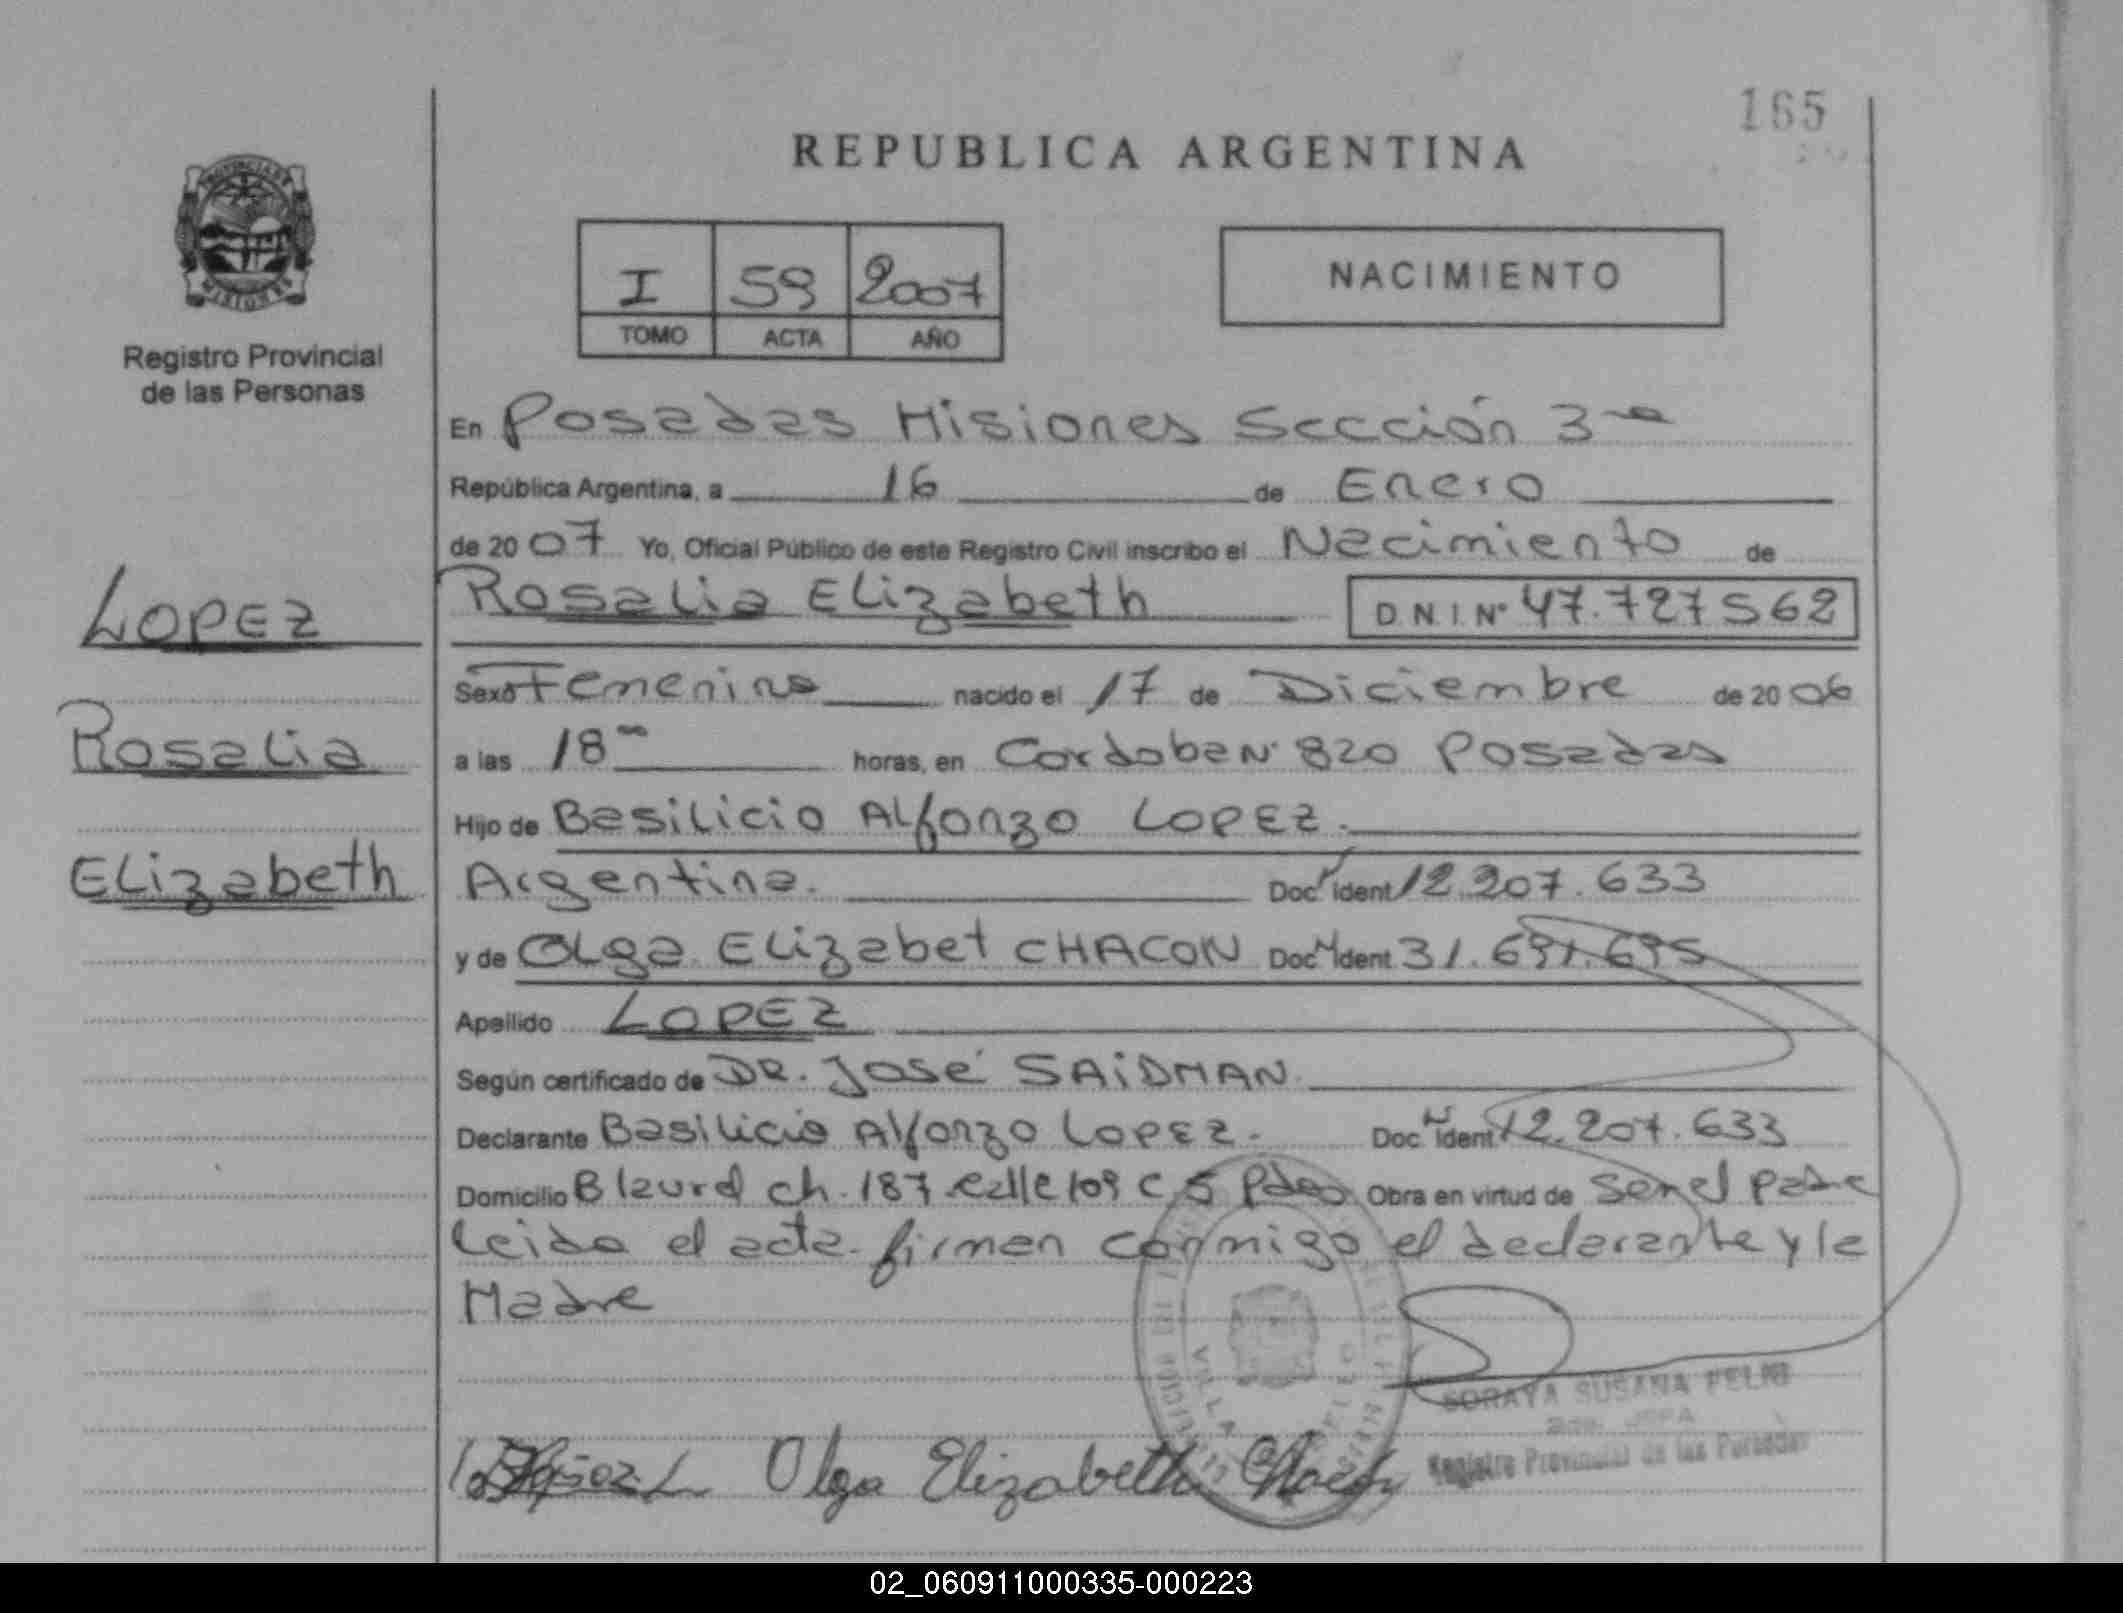 165
REPUBLICA ARGENTINA
PROVINCIA DE
MISIONES
Registro Provincial
de las Personas
I 59 2007
TOMO ACTA AÑO
NACIMIENTO
En Posadas Misiones Sección 3ra
República Argentina, a 16 de Enero
de 2007 Yo, Oficial Público de este Registro Civil inscribo el Nacimiento de
Rosalia Elizabeth D.N.I. Nº 47.727562
LOPEZ
Rosalia
Elizabeth
Sexo Femenino nacido el 17 de Diciembre de 2006
a las 18 horas, en Cordoba Nº 820 Posadas
Hijo de Basilicio Alfonzo LOPEZ.
Argentina. Doc. Ident 12.207.633
y de Olga Elizabet CHACON Doc. Ident. 31.691.695
Apellido LOPEZ
Según certificado de DR. José SAIDMAN
Declarante Basilicio Alfonzo Lopez. Doc. Ident 12.207.633
Domicilio B Laurel ch. 187 calle 109 C 5 Pdas Obra en virtud de ser el padre
Leida el acta firman conmigo el declarante y la
Madre
Olga Elizabeth Chacon
SORAYA SUSANA
JEFA
Registro Provincial de las Personas
02_060911000335-000223